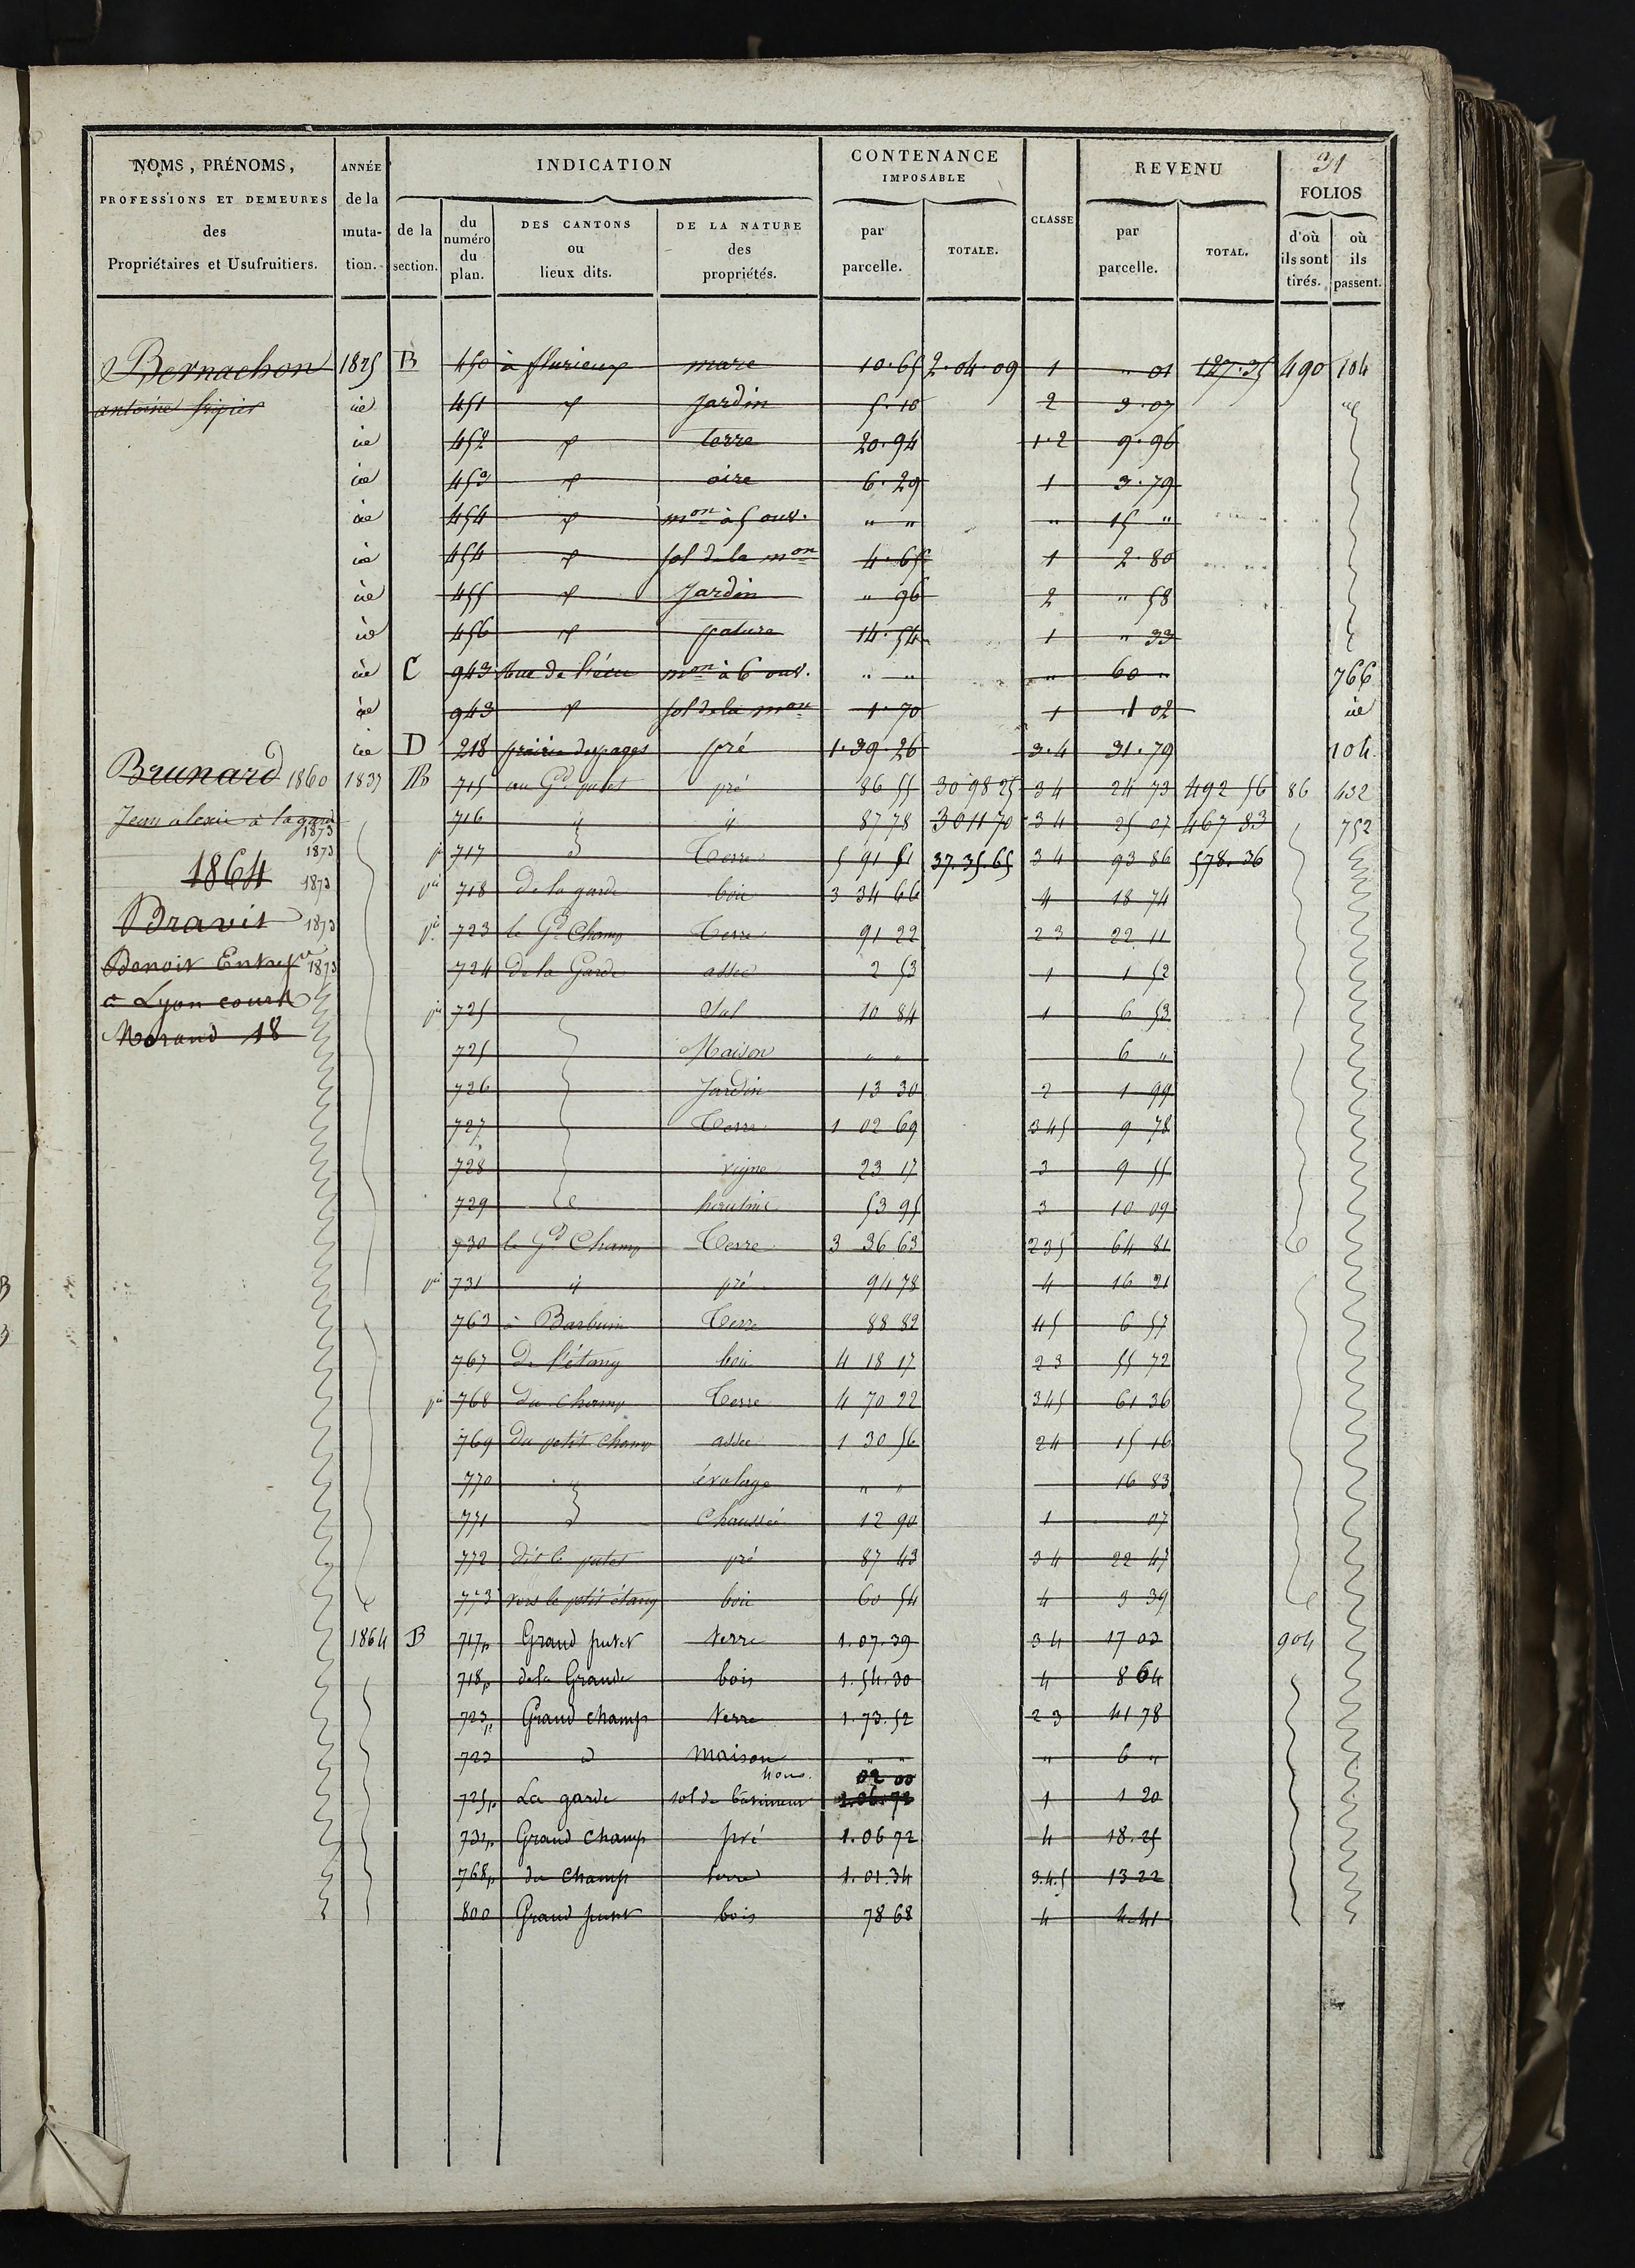 31
NOMS, PRÉNOMS, PROFESSIONS ET DEMEURES des Propriétaires et Usufruitiers.
ANNÉE de la muta- tion.
INDICATION
de la section.
du numéro du plan.
DES CANTONS ou lieux dits.
DE LA NATURE des propriétés.
CONTENANCE IMPOSABLE
par parcelle.
TOTALE.
CLASSE
REVENU
par parcelle.
TOTAL.
FOLIOS
d'où ils sont tirés.
où ils passent.
Bernachon 1825 B 450 à flurieux mare 10.65 2.04.09 1 " 01 127.35 490 104
antoine fripier id 451 d jardin 5.10 2 3.07 id
id 452 d terre 20.94 1.2 9.96
id 453 d aire 6.29 1 3.79
id 454 d mon à 5 ouv. " " " 15 "
id 454 d sol de la mon 4.65 1 2.80
id 455 d Jardin " 96 2 " 58
id 456 d pature 14.54 1 " 33
id C 943 Rue de l'écu mon à 6 ouv. " " " 60 " 766
id 943 d sol de la mon 1.70 1 1 02 id
id D 218 prairie des pages pré 1.39.26 3.4 31.79 104
Brunard 1860 1837 B 715 au Gd putet pré 86 55 30 98 25 34 24 73 492 56 86 432
Jean alexis à la garde 1873 716 " " 87 78 30 11 70 34 25 07 467 83 752
1873 717 d Terre 5 91 51 37.35.65 34 93 86 578.36
1864 1873 718 de la garde bois 3 34 66 4 18 74
Bravit 1873 723 le Gd Champ Terre 91 22 23 22 11
Benoit Entrepr 1873 724 de la Garde assec 2 53 1 1 52
à Lyon cours 725 Sol 10 84 1 6 53
Morand 18
725 Maison " " 6 "
726 Jardin 13 30 2 1 99
727 Terre 1 02 69 345 9 78
728 vigne 23 17 3 9 55
729 d hautins 53 95 3 10 09
730 le Gd Champ Terre 3 36 63 235 64 81
731 " pré 94 78 4 16 21
763 à Barbuin Terre 88 82 45 6 57
767 De l'étang bois 4 18 17 23 55 72
768 du champ Terre 4 70 22 345 61 36
769 du petit champ assec 1 30 56 24 15 16
770 " évolage " " 16 83
771 d Chaussée 12 90 1 07
772 dit le putet pré 87 43 34 22 47
773 vers le petit étang bois 60 54 4 3 39
1864 B 717p Grand putet terre 1.07.39 34 17 03 904
718p de la Grande bois 1.54.30 4 8 64
723p Grand champ terre 1.73.52 23 41 78
723 d maison " " " 6 "
725p La garde sol de batiment 02 00 1 1 20
731p Grand champ pré 1.06 72 4 18.25
768p du champ terre 1.01.34 3.4.5 13 22
800 Grand putet bois 78 68 4 4.41